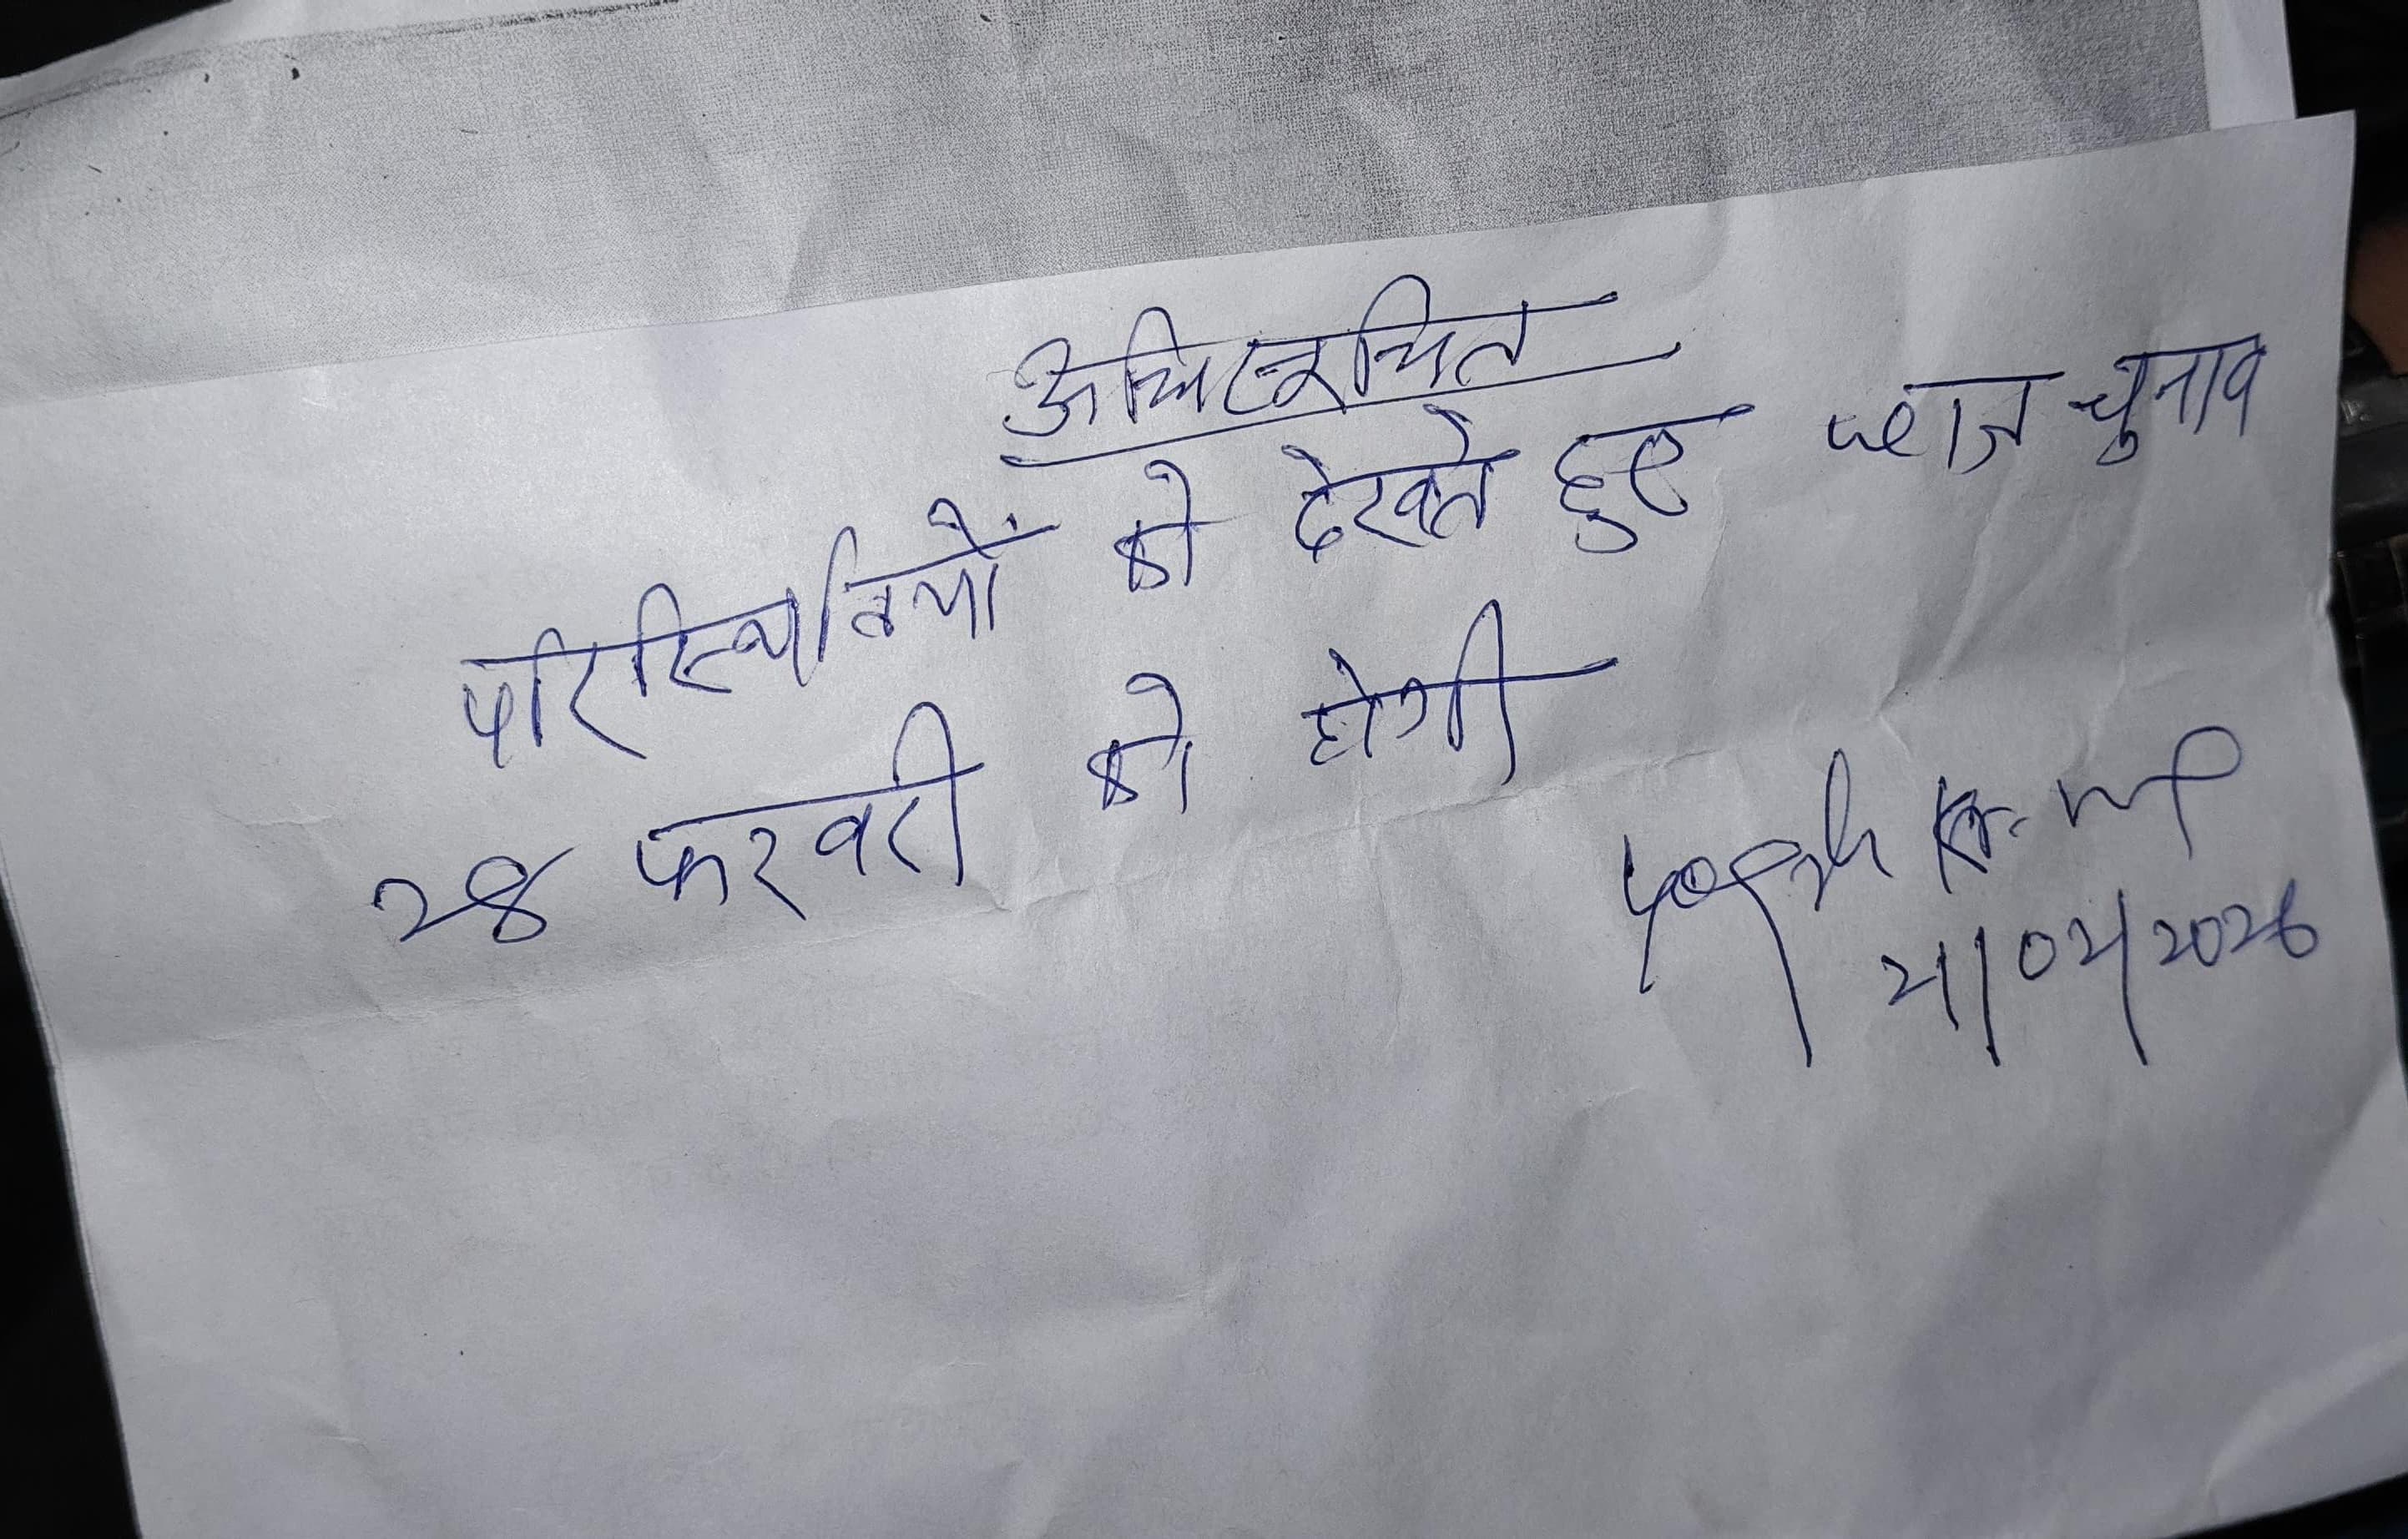 अधिसूचित
परिस्थितियों को देखते हुए चुनाव
28 फरवरी को होगी
Yogesh Kr.
21/02/2026